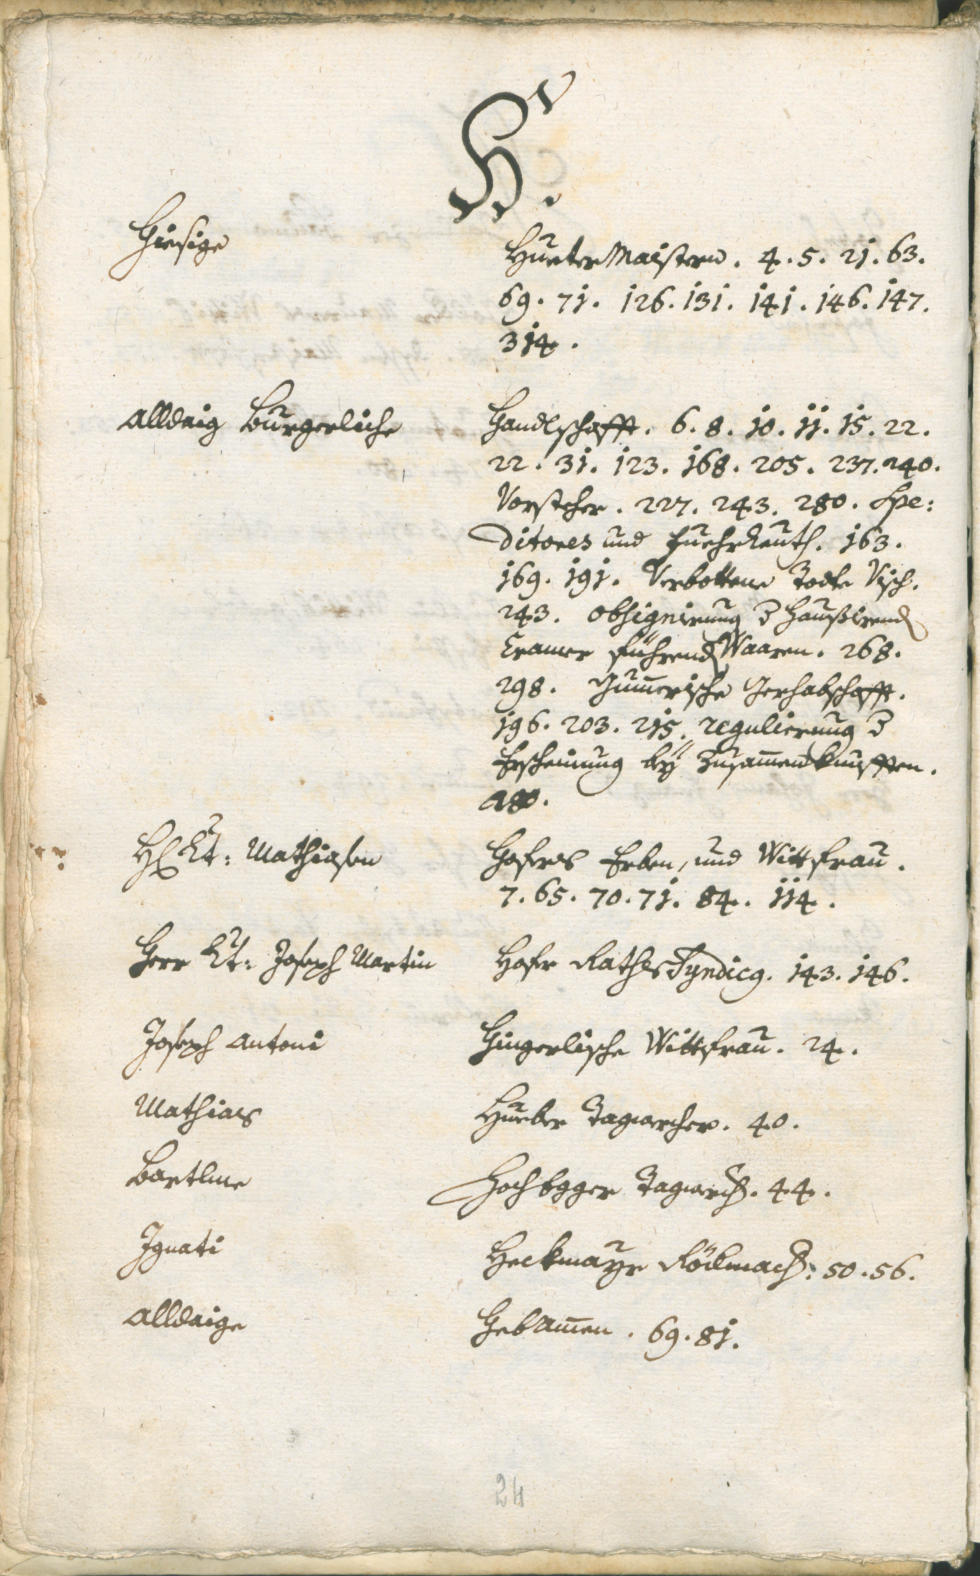 H.
Hiesige Hueter Maistern. 4. 5. 21. 63.
69. 71. 126. 131. 141. 146. 147.
314.
Alldaig Burgerliche Handlschafft. 6. 8. 10. 11. 15. 22.
22. 31. 123. 168. 205. 237. 240.
Vorsteher. 227. 243. 280. Spe:
ditores und Fuehrleuth. 163.
169. 191. Verbottene Visch.
243. Obsignierung Haußirend
Cramer führend Waaren. 268.
298. Gerhabschafft.
196. 203. 215. regulierung
Erscheinung bey Zusamenkunfften.
280.
Lt: Mathiasen Hofers Erben, und Wittfrau.
7. 65. 70. 71. 84. 114.
Herr Lt: Joseph Martin Hofer Raths Syndicg. 143. 146.
Joseph Antoni Hingerlische Wittfrau. 24.
Mathias Hueber Tagwercher. 40.
Bartlme Hochegger Tagwerch. 44.
Ignati Heckmayr 50. 56.
Alldaige Hebamen. 69. 81.
24